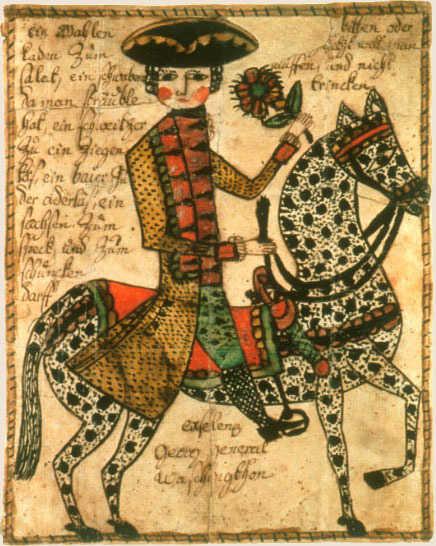 ein Wahlen
laden Zum
salat, ein schwaben
da man sträuble
hat, ein schweitzer
Zu ein Ziegen
käs, ein baier Zu
der aderlas, ein
sachsen Zum
speck, und Zum
schüncken
darff
bitten oder
will man
ruffen, und nicht
trincken
exselenz
Georg General
Waschingthon